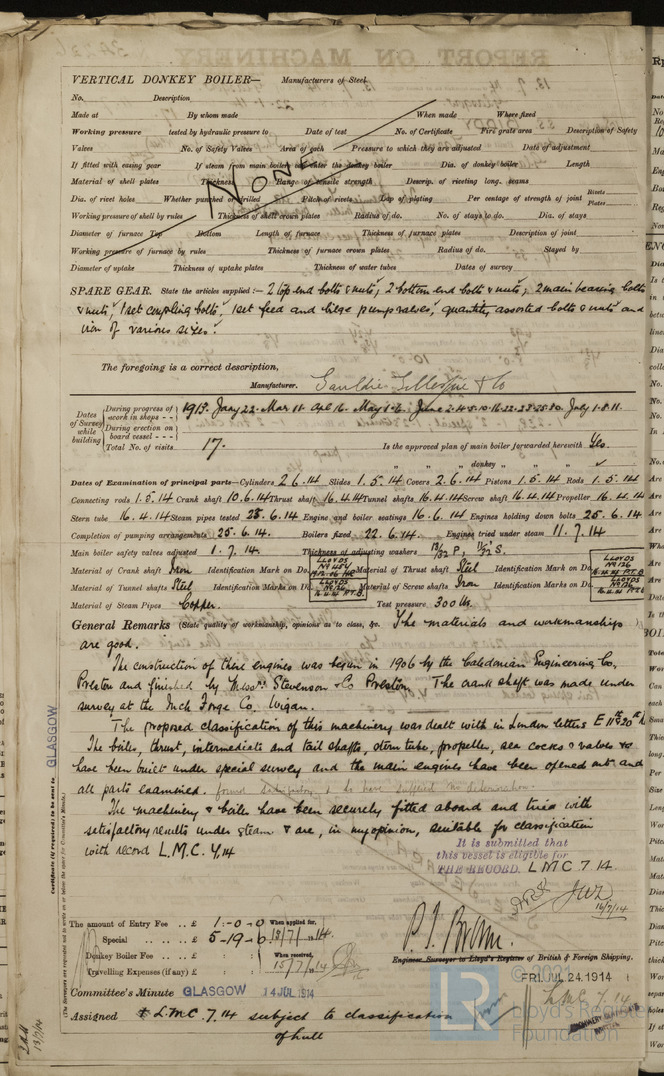 VERTICAL DONKEY BOILER— Manufacturers of Steel
No. Description
Made at By whom made When made Where fixed
Working pressure tested by hydraulic pressure to Date of test No. of Certificate Fire grate area Description of Safety
Valves No. of Safety Valves Area of each Pressure to which they are adjusted Date of adjustment
If fitted with easing gear If steam from main boilers can enter the donkey boiler Dia. of donkey boiler Length
Material of shell plates Thickness Range of tensile strength Descrip. of riveting long. seams
Dia. of rivet holes Whether punched or drilled Pitch of rivets Lap of plating Per centage of strength of joint Rivets Plates
Working pressure of shell by rules Thickness of shell crown plates Radius of do. No. of stays to do. Dia. of stays
Diameter of furnace Top Bottom Length of furnace Thickness of furnace plates Description of joint
Working pressure of furnace by rules Thickness of furnace crown plates Radius of do. Stayed by
Diameter of uptake Thickness of uptake plates Thickness of water tubes Dates of survey
NONE
SPARE GEAR. State the articles supplied:— 2 top end bolts & nuts, 2 bottom end bolts & nuts, 2 main bearing bolts
& nuts, 1 set coupling bolts, 1 set feed and bilge pump valves, quantity assorted bolts & nuts and
iron of various sizes.
The foregoing is a correct description,
Manufacturer. Gauldie Gillespie & Co
Dates of Survey while building
During progress of work in shops - - 1913. Jany 22. Mar 11. Apl 16. May 1. 6. June 2. 4. 5. 10. 16. 22. 23. 25. 30. July 1. 8. 11.
During erection on board vessel - - -
Total No. of visits 17. Is the approved plan of main boiler forwarded herewith Yes
" " " donkey " " "
Dates of Examination of principal parts—Cylinders 2.6.14 Slides 1.5.14 Covers 2.6.14 Pistons 1.5.14 Rods 1.5.14
Connecting rods 1.5.14 Crank shaft 10.6.14 Thrust shaft 16.4.14 Tunnel shafts 16.4.14 Screw shaft 16.4.14 Propeller 16.4.14
Stern tube 16.4.14 Steam pipes tested 23.6.14 Engine and boiler seatings 16.6.14 Engines holding down bolts 25.6.14
Completion of pumping arrangements 25.6.14 Boilers fixed 22.6.14 Engines tried under steam 11.7.14
Main boiler safety valves adjusted 1.7.14. Thickness of adjusting washers 13/32 P, 11/32 S.
Material of Crank shaft Iron Identification Mark on Do. Material of Thrust shaft Steel Identification Mark on Do.
Material of Tunnel shafts Steel Identification Marks on Do. Material of Screw shafts Iron Identification Marks on Do.
LLOYDS
LLOYDS
No 126
16.4.14 P.T.B.
LLOYDS
No 126
16.4.14 P.T.B.
Material of Steam Pipes Copper. Test pressure 300 lbs.
General Remarks (State quality of workmanship, opinions as to class, &c. The materials and workmanship
are good.
The construction of these engines was begun in 1906 by the Caledonian Engineering Co,
Preston and finished by Messrs Stevenson & Co Preston. The crank shaft was made under
survey at the Inch Forge Co. Wigan.
The proposed classification of this machinery was dealt with in London letters E 11th & 20th
The boiler, thrust, intermediate and tail shafts, stern tube, propeller, sea cocks & valves
have been built under special survey and the main engines have been opened out and
all parts examined.
The machinery & boiler have been securely fitted aboard and tried with
satisfactory results under steam & are, in my opinion, suitable for classification
with record L.M.C. 7.14
It is submitted that
this vessel is eligible for
THE RECORD. LMC 7.14.
16/7/14
GLASGOW
Certificate (if required) to be sent to
(The Surveyors are requested not to write on or below the space for Committee's Minute.)
The amount of Entry Fee .. £ 1 : 0 . 0 When applied for,
Special .. .. .. £ 5 - 19 - 0 13/7/1914.
Donkey Boiler Fee .. .. £ : : When received,
Travelling Expenses (if any) £ : : 15/7/1914
P. T. Brown.
Engineer Surveyor to Lloyd's Register of British & Foreign Shipping.
Committee's Minute GLASGOW 14 JUL 1914
FRI. JUL. 24. 1914
LMC 7.14
Assigned + L.M.C. 7.14 subject to classification
of hull
MACHINERY CERTIFICATE WRITTEN
13/7/14
© 2021
LR
Lloyd's Register
Foundation